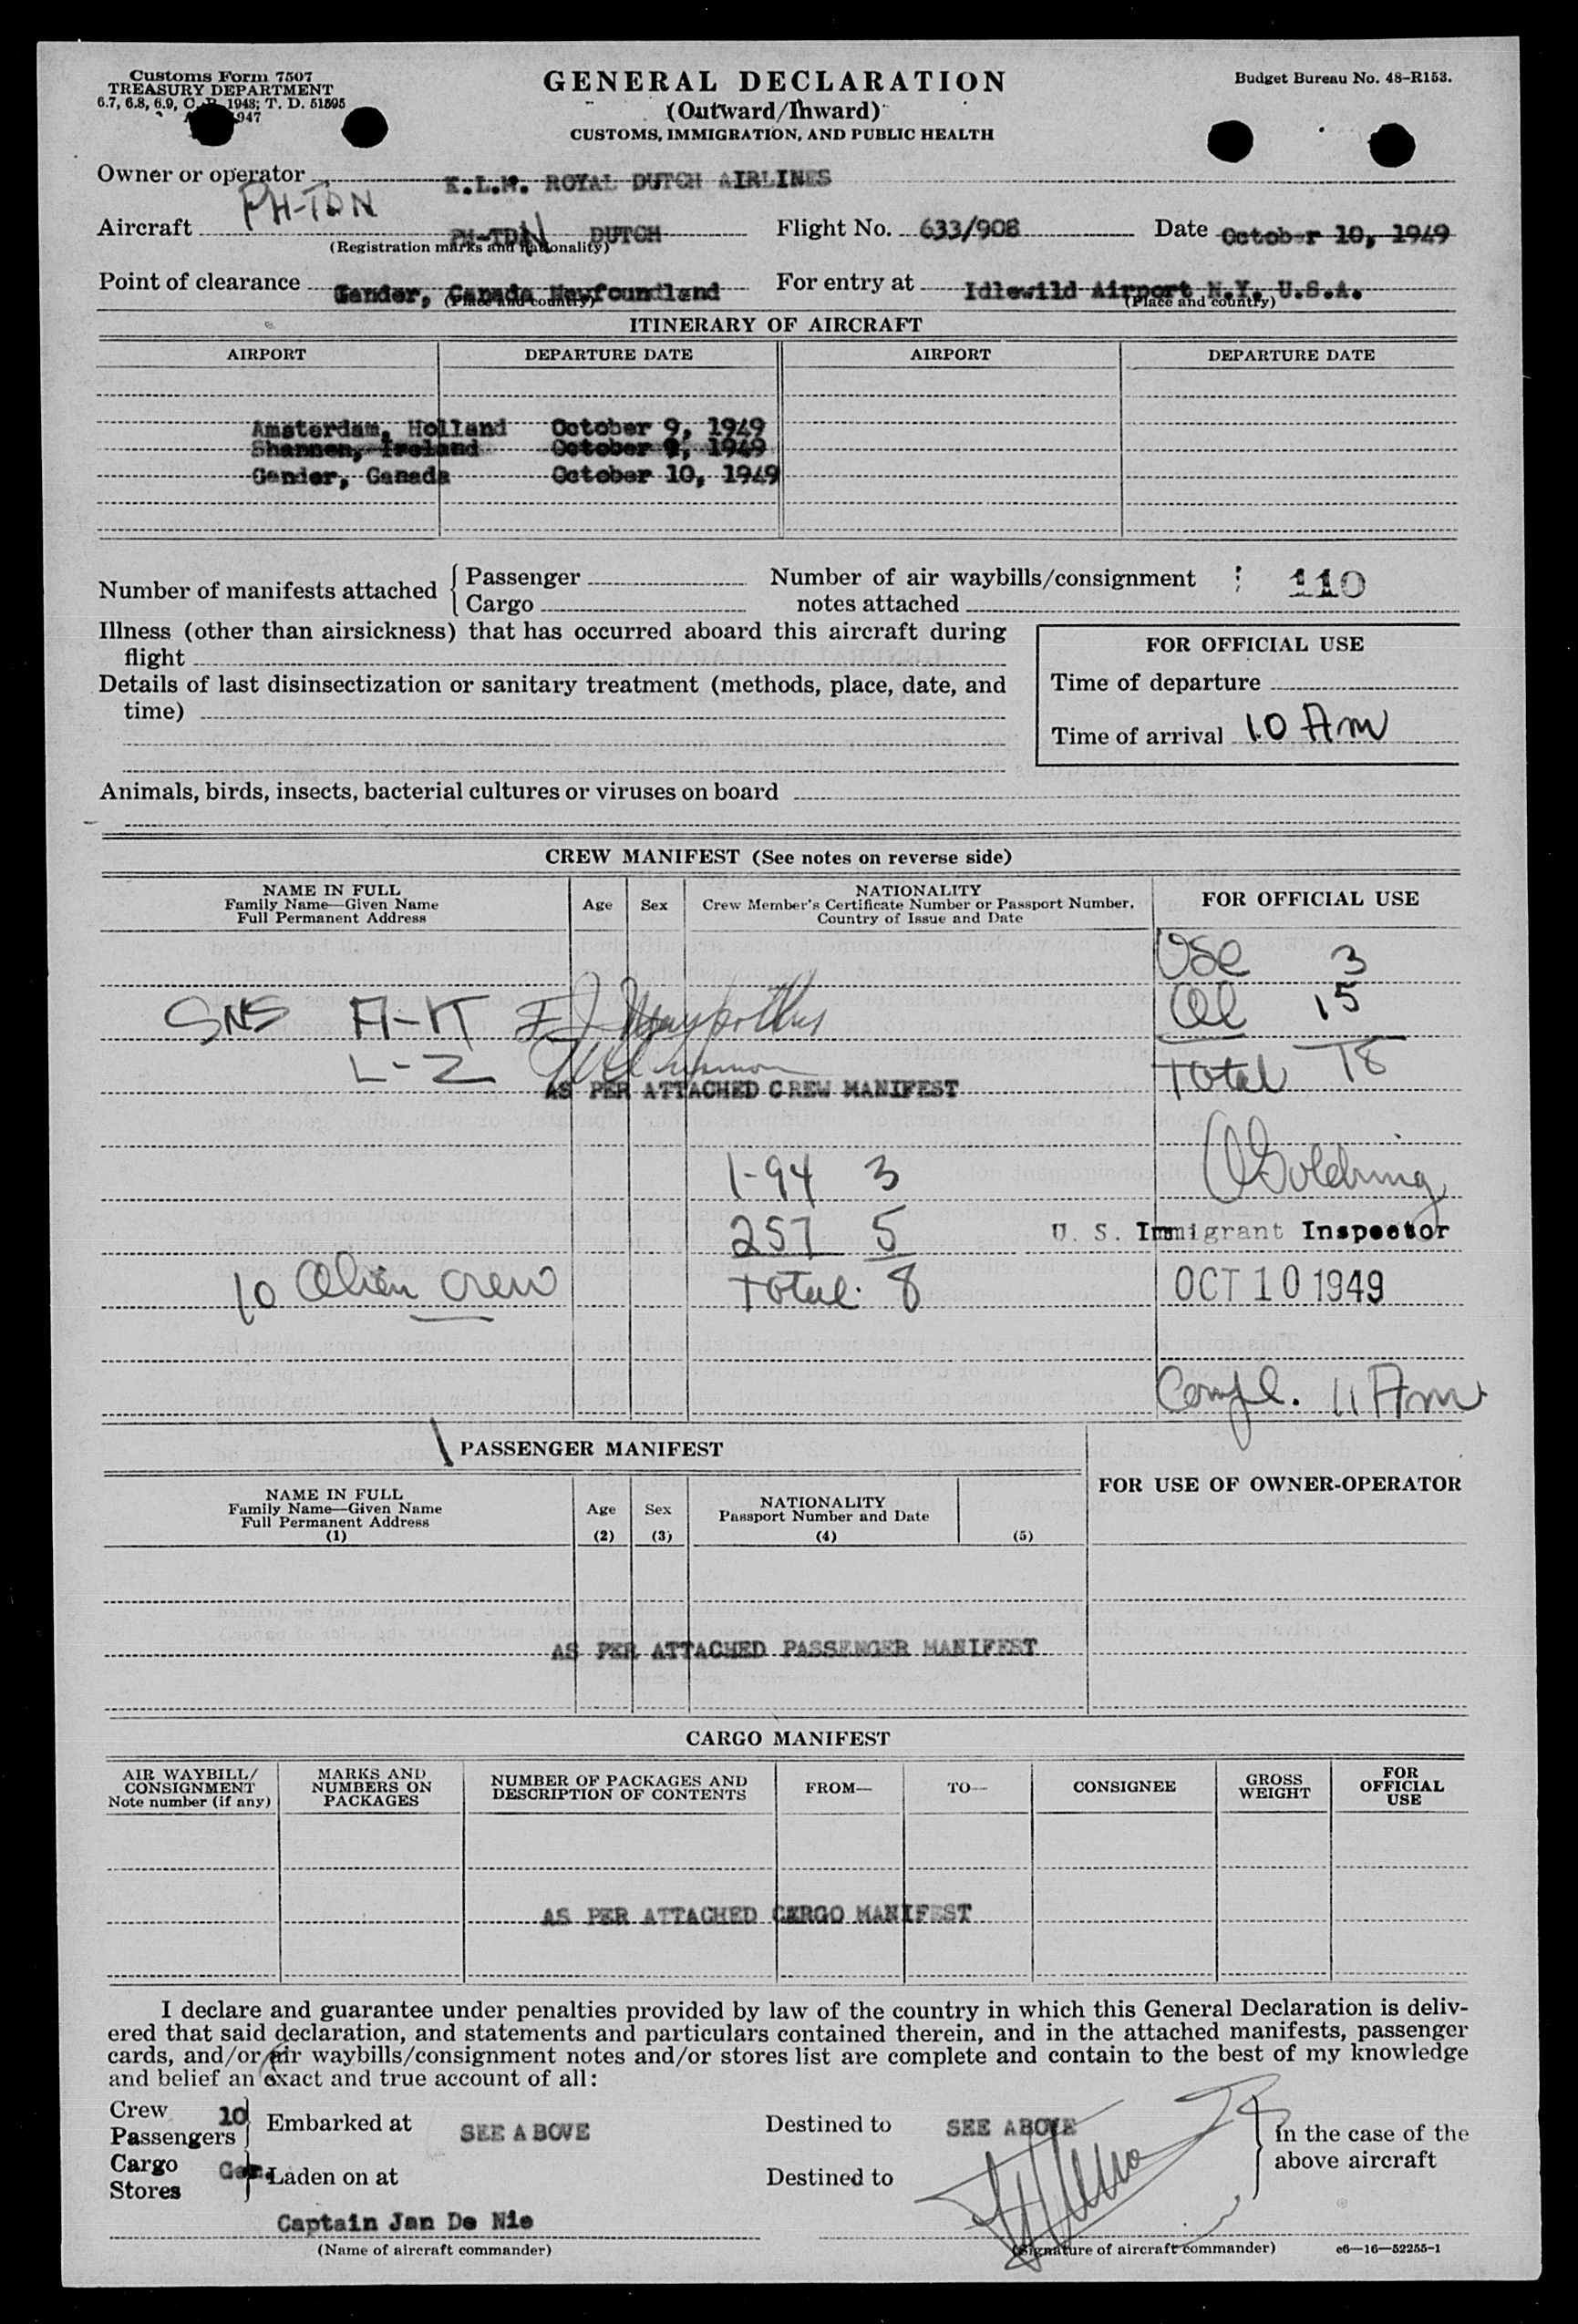 Customs Form 7507
TREASURY DEPARTMENT
6.7, 6.8, 6.9, C. R. 1943; T. D. 51595
947
GENERAL DECLARATION
(Outward/Inward)
CUSTOMS, IMMIGRATION, AND PUBLIC HEALTH
Budget Bureau No. 48-R153.
Owner or operator K.L.M. ROYAL DUTCH AIRLINES
PH-TDN
Aircraft PH-TDN DUTCH Flight No. 633/908 Date October 10, 1949
(Registration marks and nationality)
Point of clearance Gander, Canada Newfoundland For entry at Idlewild Airport N.Y. U.S.A.
(Place and country) (Place and country)
ITINERARY OF AIRCRAFT
AIRPORT DEPARTURE DATE AIRPORT DEPARTURE DATE
Amsterdam, Holland October 9, 1949
Shannon, Ireland October 9, 1949
Gander, Canada October 10, 1949
Number of manifests attached { Passenger
Cargo
Number of air waybills/consignment
notes attached
110
Illness (other than airsickness) that has occurred aboard this aircraft during
flight
Details of last disinsectization or sanitary treatment (methods, place, date, and
time)
FOR OFFICIAL USE
Time of departure
Time of arrival 10 Am
Animals, birds, insects, bacterial cultures or viruses on board
CREW MANIFEST (See notes on reverse side)
NAME IN FULL
Family Name—Given Name
Full Permanent Address
Age Sex
NATIONALITY
Crew Member's Certificate Number or Passport Number,
Country of Issue and Date
FOR OFFICIAL USE
USC 3
SNS A-K
Al 15
L-Z
Total 18
AS PER ATTACHED CREW MANIFEST
1-94 3
Goldring
257 5
U. S. Immigrant Inspector
10 Alien crew
Total 8
OCT 10 1949
Compl. 11 Am
PASSENGER MANIFEST
FOR USE OF OWNER-OPERATOR
NAME IN FULL
Family Name—Given Name
Full Permanent Address
(1)
Age
(2)
Sex
(3)
NATIONALITY
Passport Number and Date
(4)
(5)
AS PER ATTACHED PASSENGER MANIFEST
CARGO MANIFEST
AIR WAYBILL/
CONSIGNMENT
Note number (if any)
MARKS AND
NUMBERS ON
PACKAGES
NUMBER OF PACKAGES AND
DESCRIPTION OF CONTENTS
FROM—
TO—
CONSIGNEE
GROSS
WEIGHT
FOR
OFFICIAL
USE
AS PER ATTACHED CARGO MANIFEST
I declare and guarantee under penalties provided by law of the country in which this General Declaration is deliv-
ered that said declaration, and statements and particulars contained therein, and in the attached manifests, passenger
cards, and/or air waybills/consignment notes and/or stores list are complete and contain to the best of my knowledge
and belief an exact and true account of all:
Crew 10
Passengers
Embarked at SEE ABOVE Destined to SEE ABOVE
Cargo
Stores
Laden on at Destined to
In the case of the
above aircraft
Captain Jan De Nie
(Name of aircraft commander)
(Signature of aircraft commander)
c6—16—52255-1